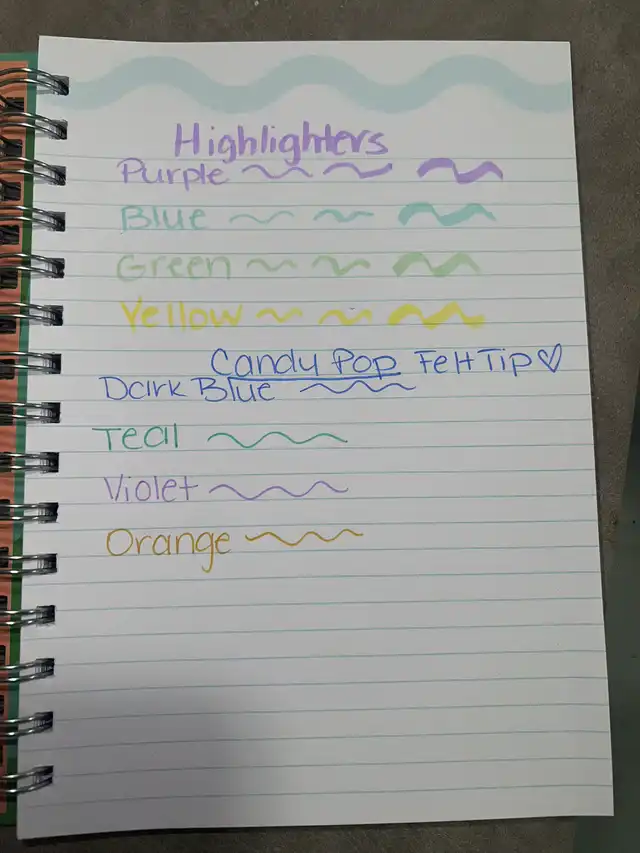 Highlighters
Purple
Blue
Green
Yellow
Candy Pop Felt Tip♡
Dark Blue
Teal
Violet
Orange